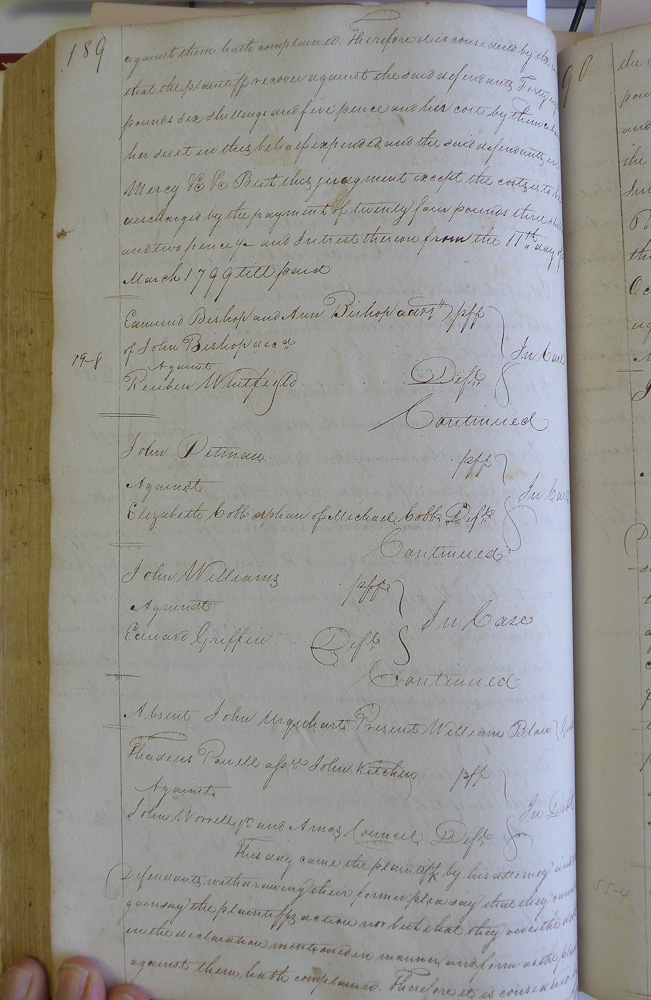 189
against them hath complained. Therefore it is considered by the
that the plaintiff recover against the said defendants Forty
pounds six shillings and five pence and her costs by them
her suit in this behalf expended and the said defendants in
Mercy &c &c But this judgment except the costs is to be
discharged by the payment of twenty four pounds three
and two pence and Interest thereon from the 11th day of
March 1799 till paid
Edmund Bishop and Ann Bishop admrs plff
of John Bishop decd
Against
In Case
Reuben Whitfield Deft
Continued
John Pitman plff
Against
In Case
Elizabeth Cobb orphan of Michael Cobb Deft
Continued
John Williams plff
Against
In Case
Edward Griffin Deft
Continued
Absent John Urquhart Present William Blow
Thadeus Powell assee John Kitchen plff
Against
In Debt
John Worrell jr and Amos Council Deft
This day came the plaintiff by his attorney and
Defendants withdrawing their former plea say that they cannot
gainsay the plaintiffs action nor but that they owe the debt
in the declaration mentioned in manner and form as the plaintiff
against them hath complained. Therefore it is considered by
90
the